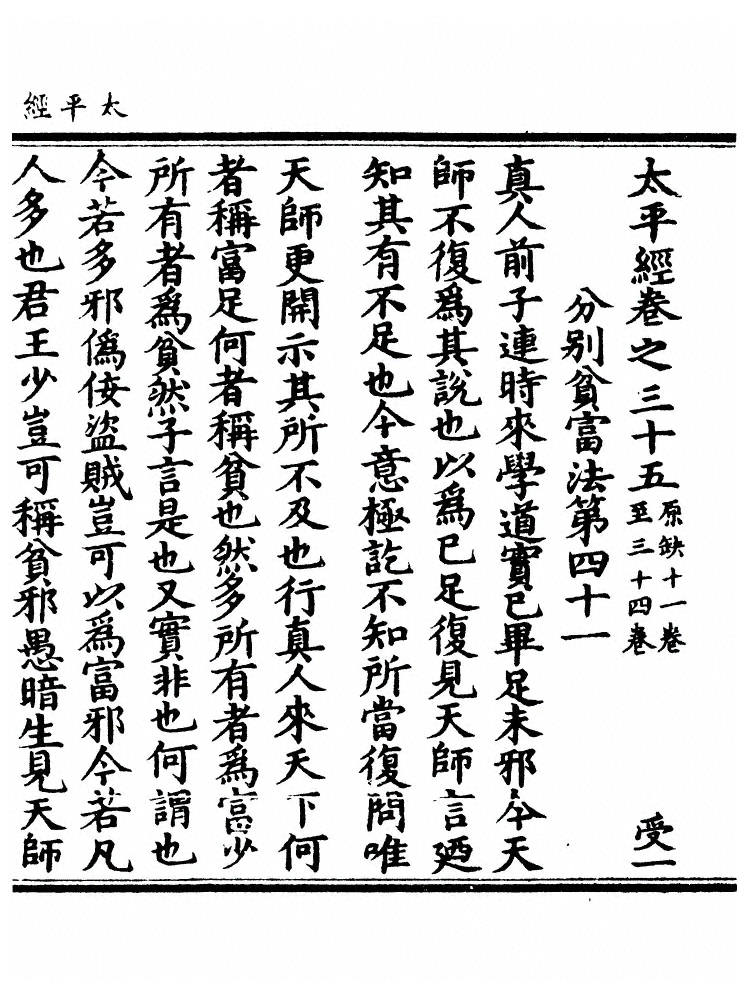 太平經
太平經卷之三十五
原缺十一卷
至三十四卷
受一
分別貧富法第四十一
真人前子連時來學道實已畢足未邪今天
師不復爲其說也以爲已足復見天師言廼
知其有不足也今意極訖不知所當復問唯
天師更開示其所不及也行真人來天下何
者稱富足何者稱貧也然多所有者爲富少
所有者爲貧然子言是也又實非也何謂也
今若多邪僞佞盜賊豈可以爲富邪今若凡
人多也君王少豈可稱貧邪愚暗生見天師